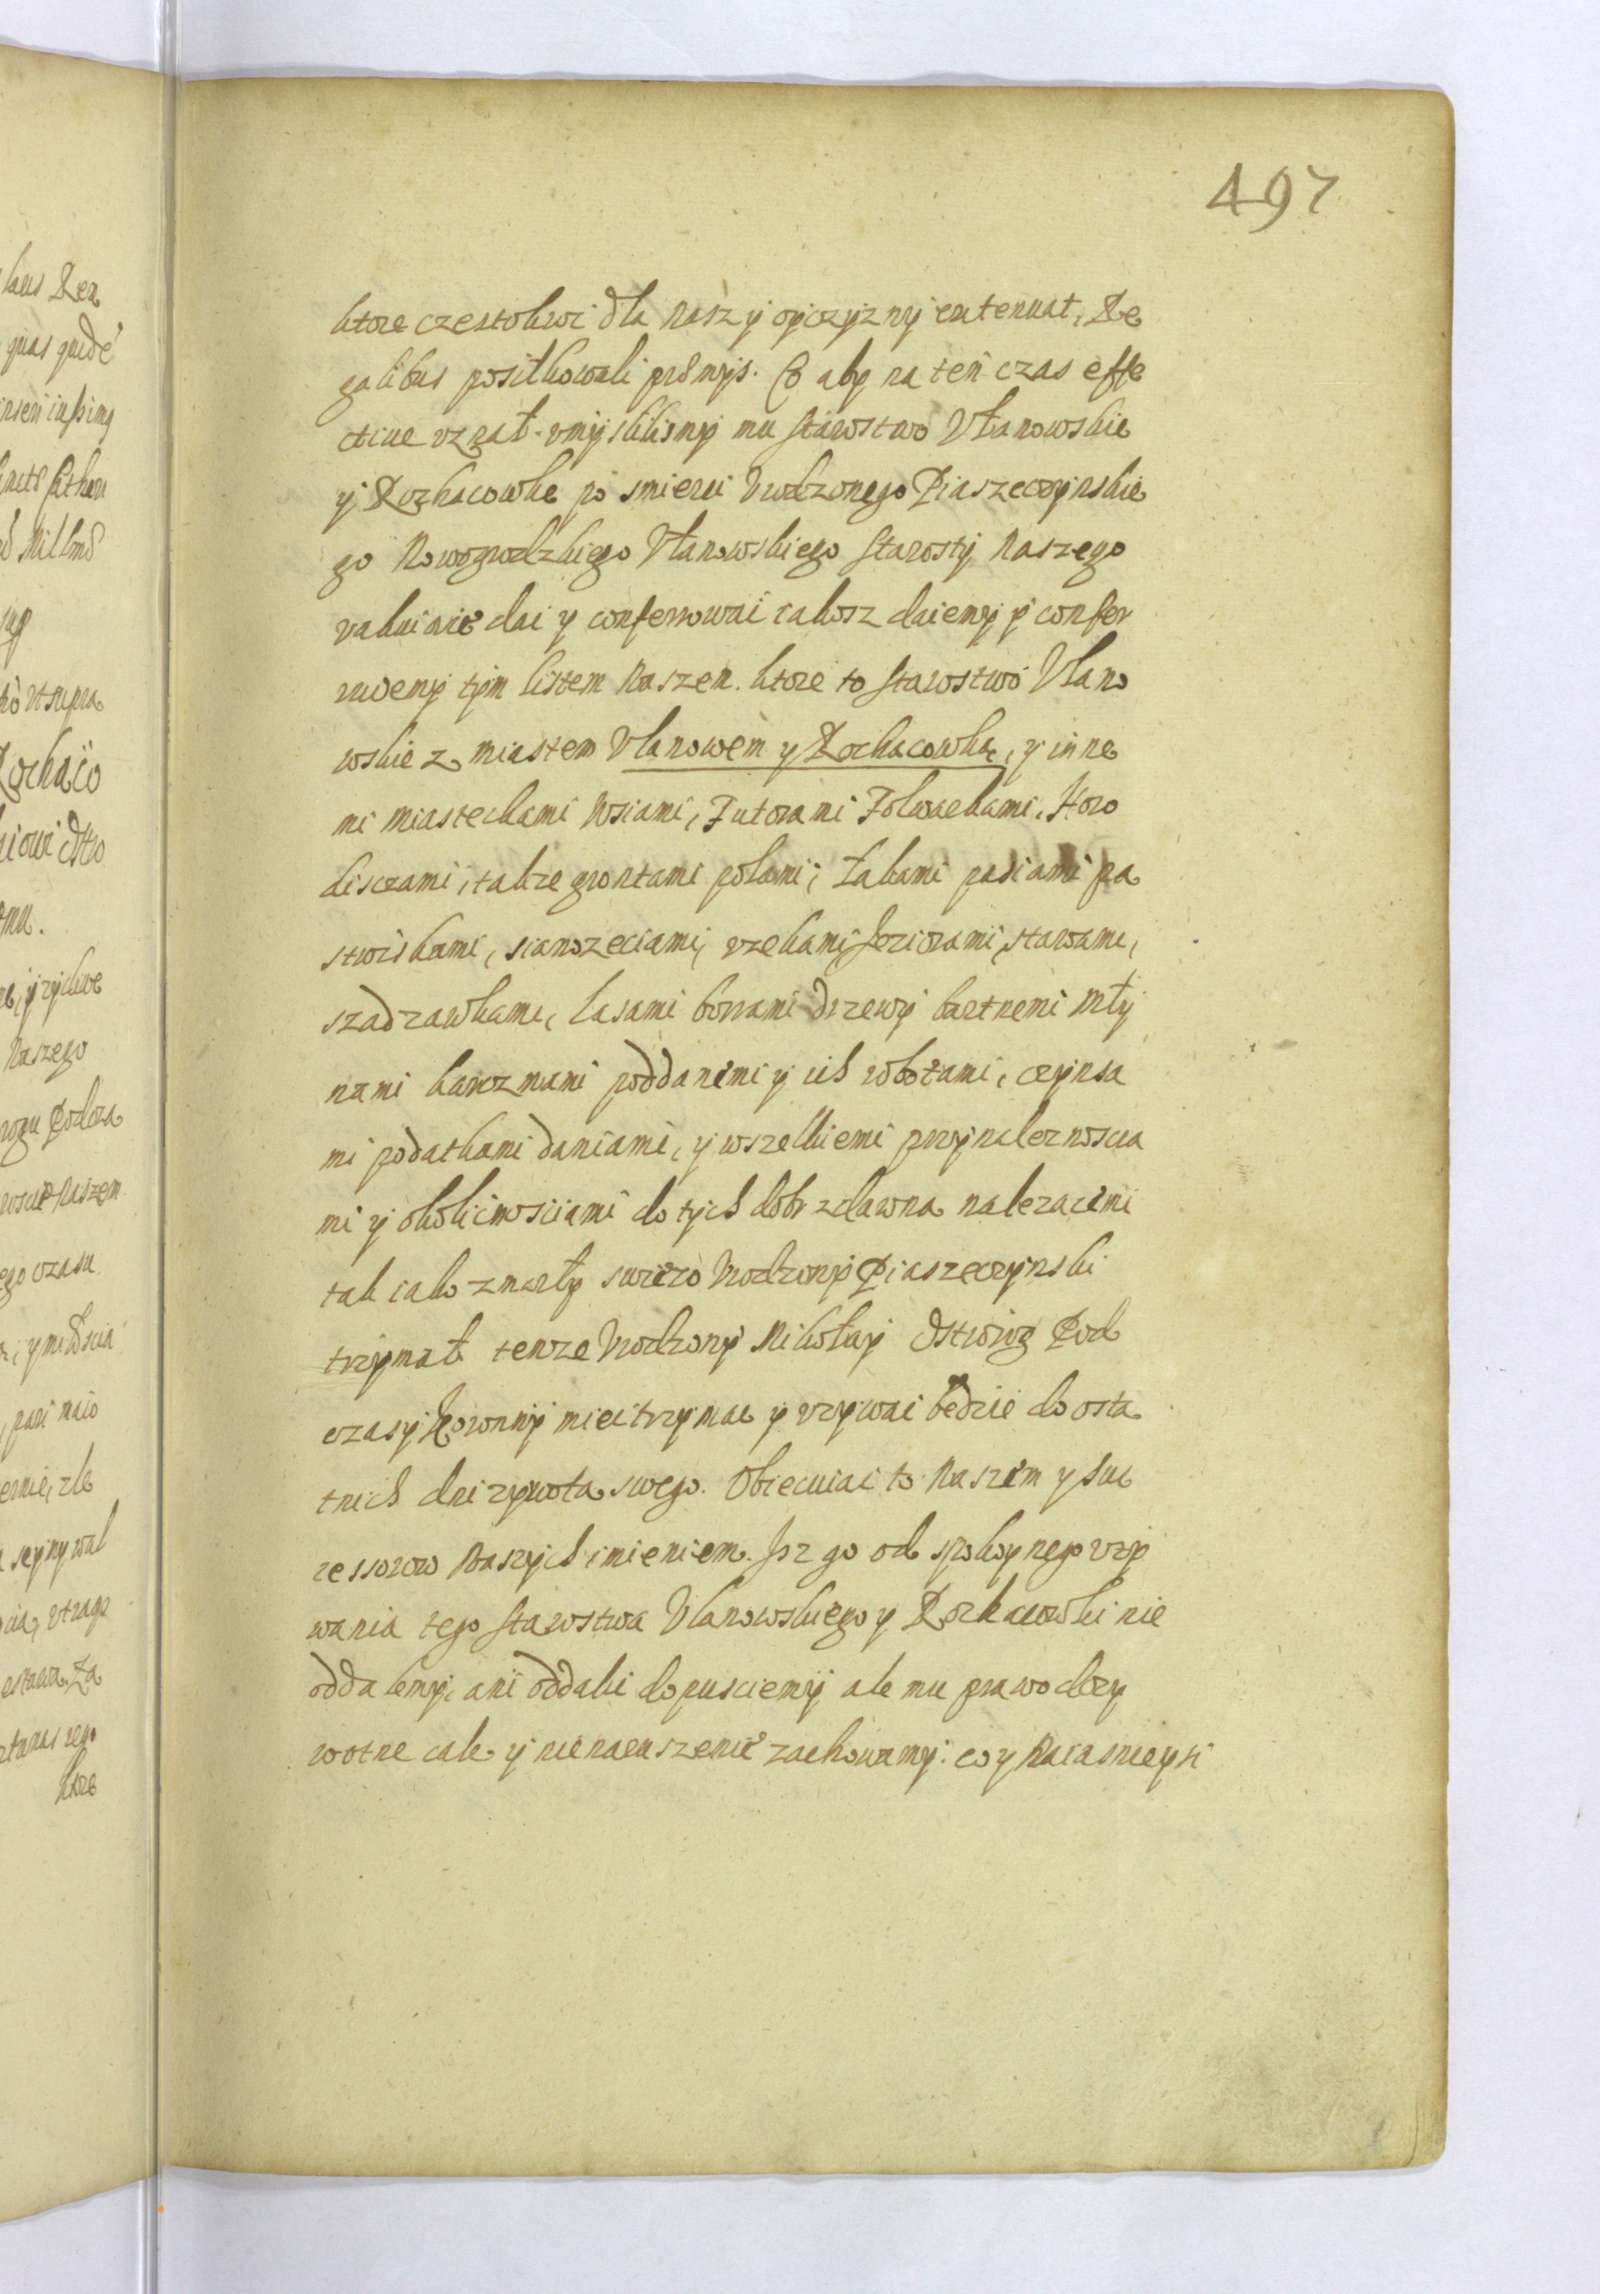 497
ktore czestokroi dla naszy oyczyzny extenuat, Re
galibus positkowali prämijs. Co aby na ten czas effe
ctiue vznał vmyslilismy mu starostwo Vłanowskie
y Rozkacowke po smierci Vrodzonego Piaszeczynskie
go Nowogrodzkiego Vłanowskiego Starosty naszego
dai y conferrowai iakosz daiemy y confer
ruiemy tym listem naszem. ktore to starostwo Vlano
wskie z miastem Vlanowem y Rochacowką, y inne
mi miasteckami wsiami, Futorami Folwarkami, Horo
disczami, takze grontami polami, Łakami pasiami pa
stwiskami, sianozeciami, rzekami Jeziorami, stawami,
szadzawkami, lasami borrami drzewy bartnemi Mły
nami karczmami poddanemi y ich robotami, czynsa
mi podatkami daniami, y wszelkiemi przynaleznoscia
mi y okolicznosciami do tych dobr zdawna nalezacemi
tak iako zmarły swiezo Vrodzony Piaszeczynski
trzymał tenze Vrodzony Mikołay Ostrorog Pod
czasy Koronny miec trzymac y vzywai bedzie do osta
tnich dni zywota swego. Obiecuiac to naszem y suc
cessorow naszych imieniem. Jsz go od spokoynego vzy
wania tego starostwa Vlanowskiego y Rozkacowki nie
oddalemy, ani oddali dopusciemy ale mu prawo dozy
wotne cale y nienaruszenie zachowamy. co y Naiasnieysi